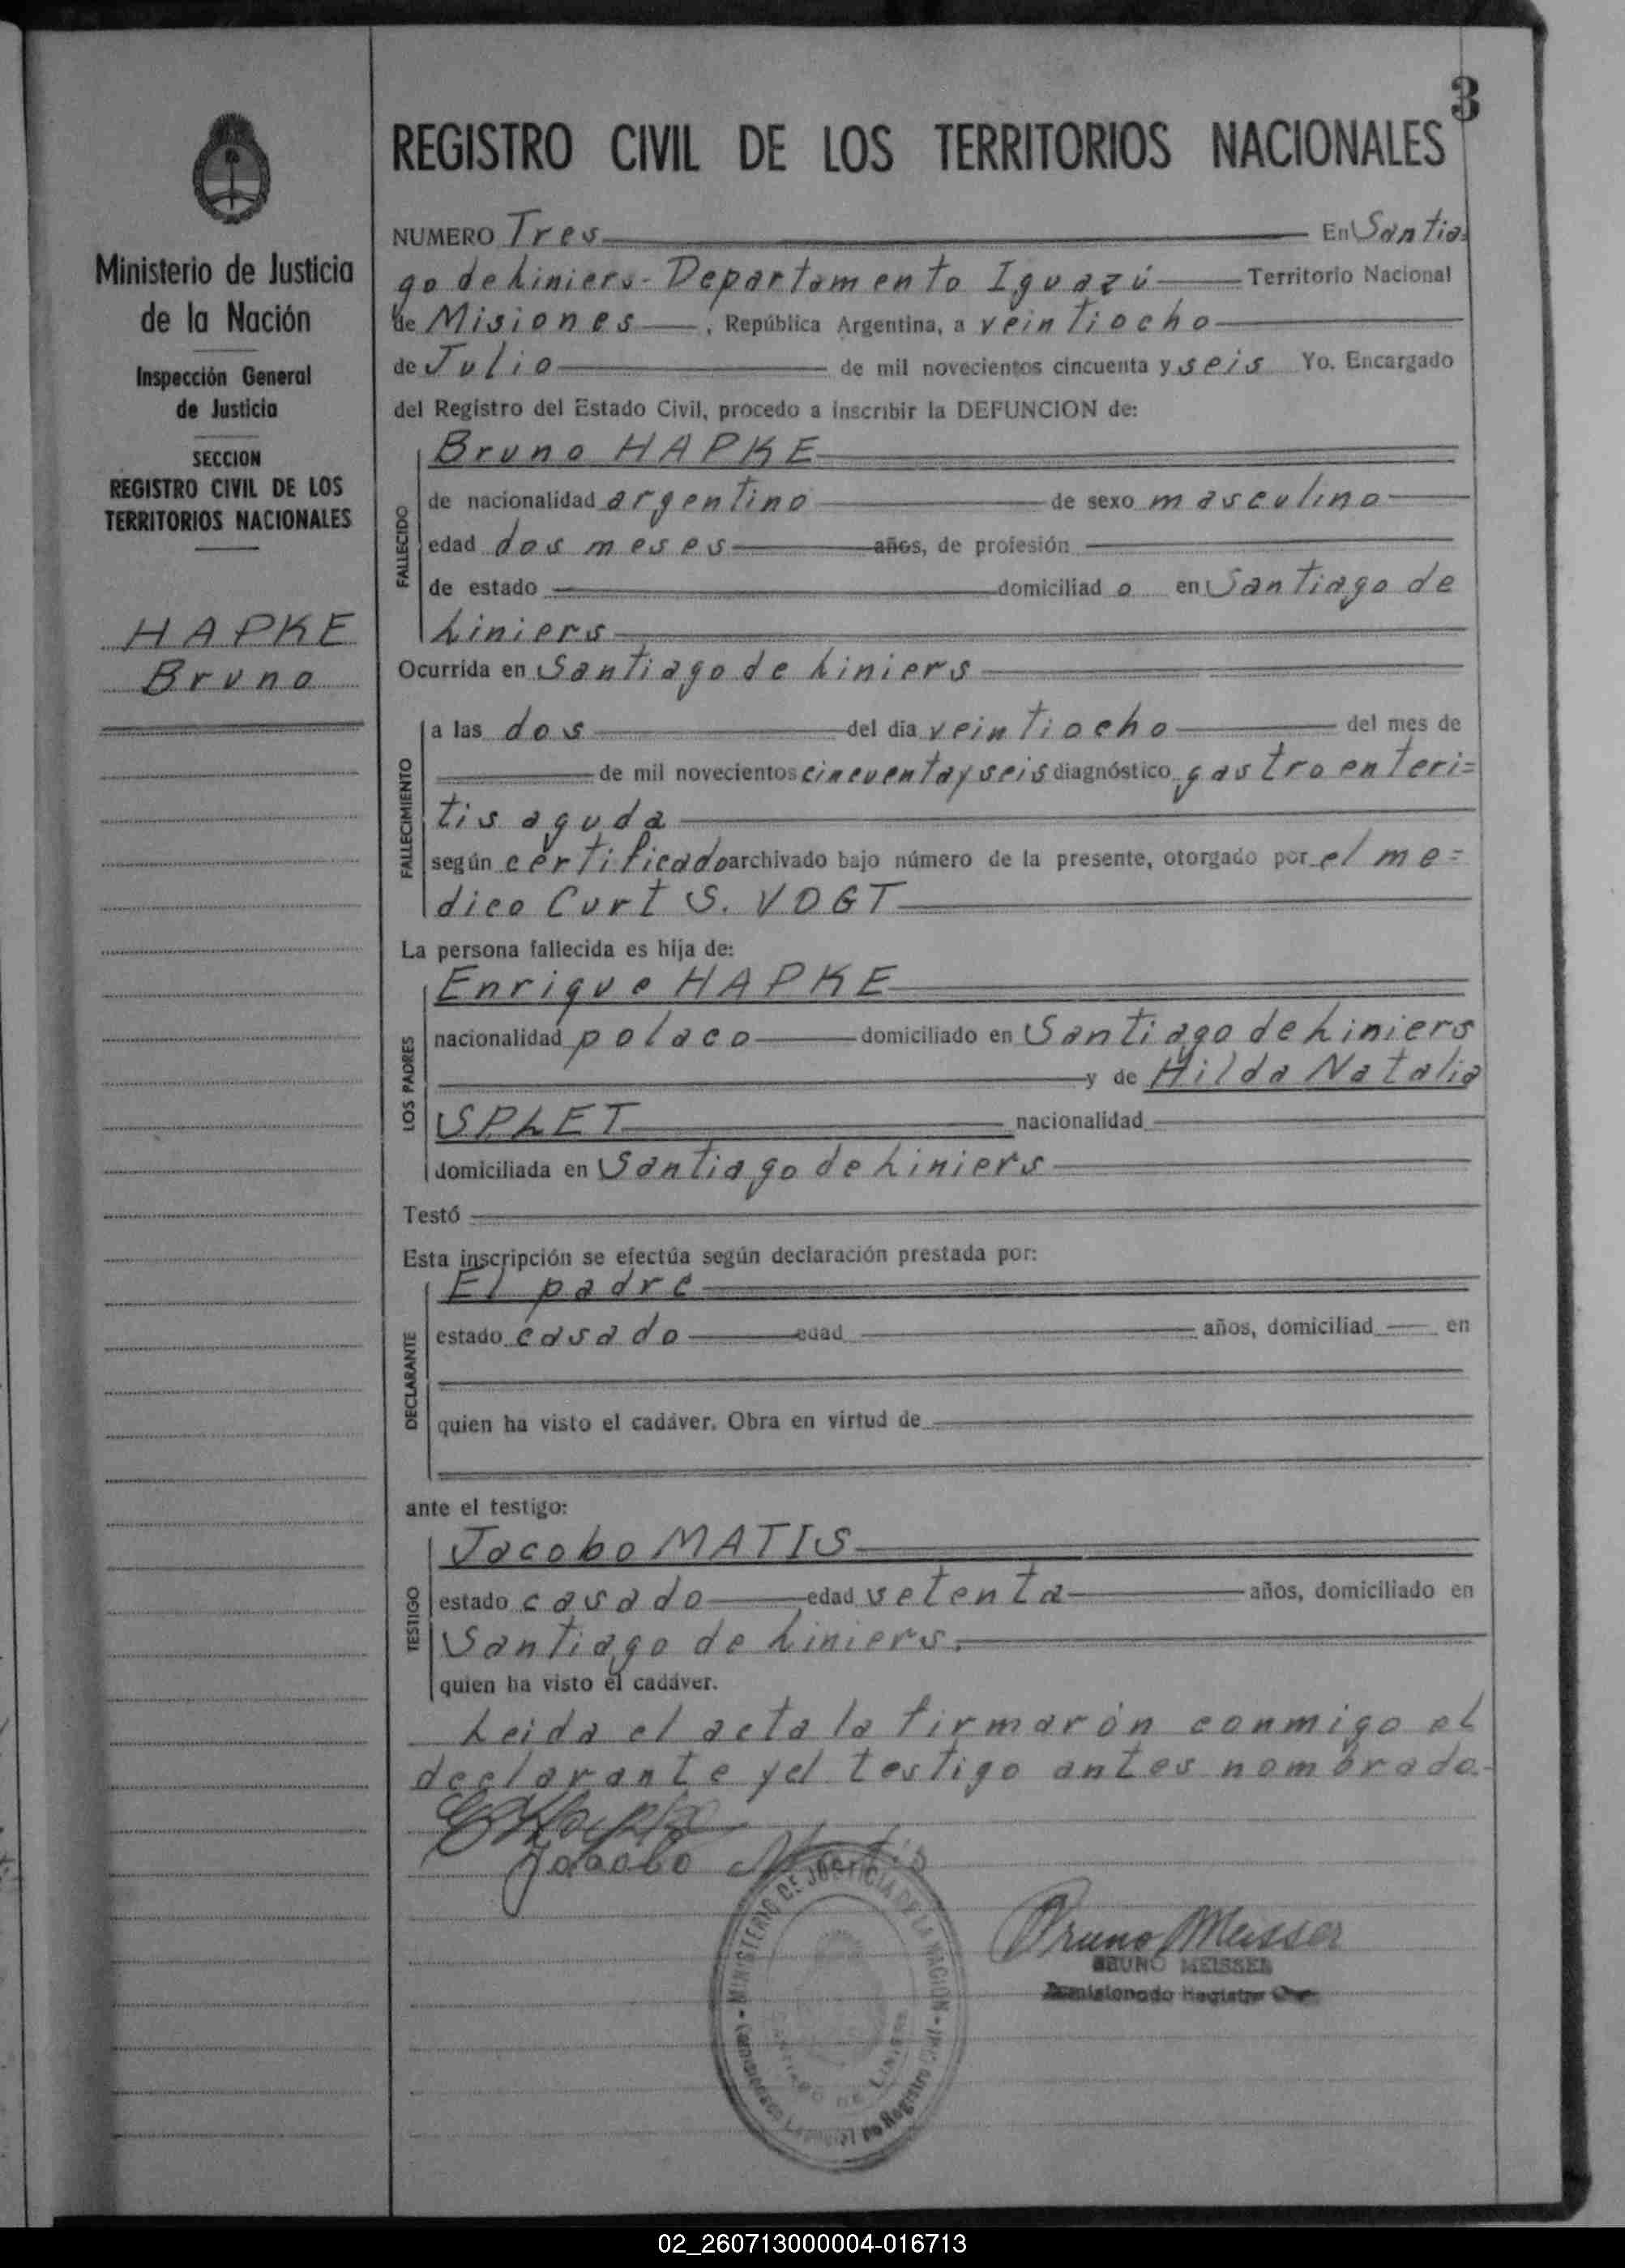 3
REGISTRO CIVIL DE LOS TERRITORIOS NACIONALES
Ministerio de Justicia
de la Nación
Inspección General
de Justicia
SECCION
REGISTRO CIVIL DE LOS
TERRITORIOS NACIONALES
HAPKE
Bruno
NUMERO Tres En Santia=
go de Liniers - Departamento Iguazú Territorio Nacional
de Misiones, República Argentina, a veintiocho
de Julio de mil novecientos cincuenta y seis Yo. Encargado
del Registro del Estado Civil, procedo a inscribir la DEFUNCION de:
FALLECIDO
Bruno HAPKE
de nacionalidad argentino de sexo masculino
edad dos meses años, de profesión
de estado domiciliado en Santiago de
Liniers
Ocurrida en Santiago de Liniers
FALLECIMIENTO
a las dos del día veintiocho del mes de
de mil novecientos cincuenta y seis diagnóstico gastroenteri=
tis aguda
según certificado archivado bajo número de la presente, otorgado por el me=
dico Curt S. VOGT
La persona fallecida es hija de:
LOS PADRES
Enrique HAPKE
nacionalidad polaco domiciliado en Santiago de Liniers
y de Hilda Natalia
SPLET nacionalidad
domiciliada en Santiago de Liniers
Testó
Esta inscripción se efectúa según declaración prestada por:
DECLARANTE
El padre
estado casado edad años, domiciliad en
quien ha visto el cadáver. Obra en virtud de
ante el testigo:
TESTIGO
Jacobo MATIS
estado casado edad setenta años, domiciliado en
Santiago de Liniers.
quien ha visto el cadáver.
Leida el acta la firmarón conmigo el
declarante y el testigo antes nombrado.-
E Hapke
Jacobo Matis
MINISTERIO DE JUSTICIA DE LA NACION
SANTIAGO DE LINIERS
Bruno Meisser
BRUNO MEISSER
02_260713000004-016713